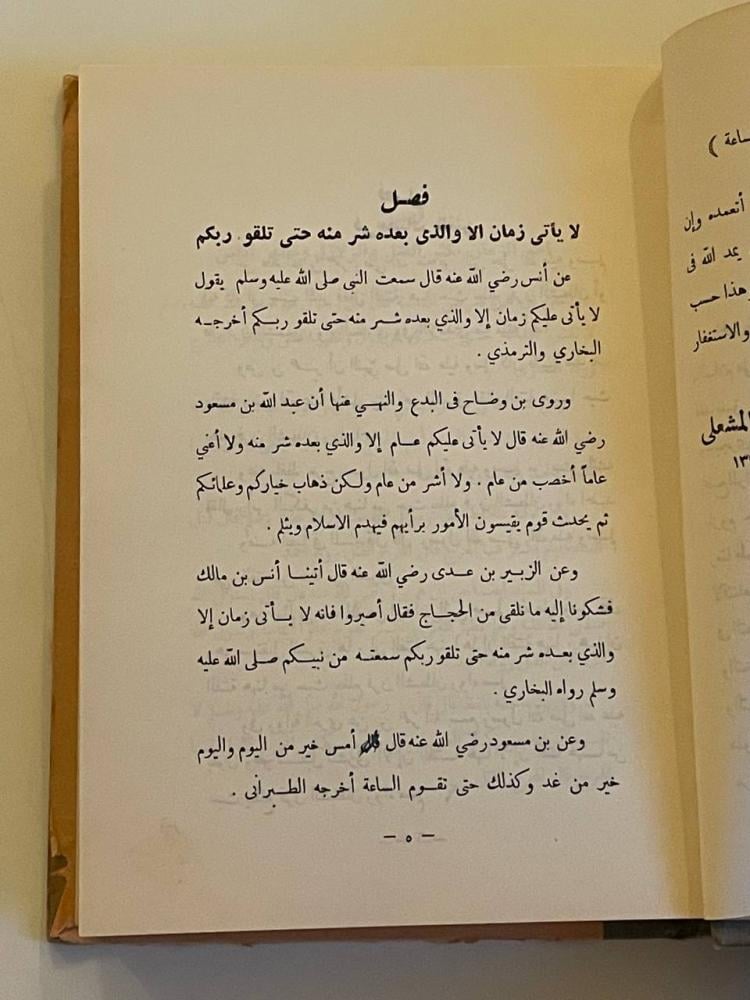 فصل
لا يأتى زمان الا والذى بعده شر منه حتى تلقو ربكم
عن أنس رضي الله عنه قال سمعت النبى صلى الله عليه وسلم يقول
لا يأتى عليكم زمان إلا والذي بعده شر منه حتى تلقو ربكم أخرجه
البخاري والترمذي .
وروى بن وضاح فى البدع والنهي عنها أن عبد الله بن مسعود
رضي الله عنه قال لا يأتى عليكم عام إلا والذي بعده شر منه ولا أعني
عاماً أخصب من عام . ولا أشر من عام ولكن ذهاب خياركم وعلمائكم
ثم يحدث قوم يقيسون الأمور برأيهم فيهدم الاسلام ويثلم .
وعن الزبير بن عدى رضي الله عنه قال أتينا أنس بن مالك
فشكونا إليه ما نلقى من الحجاج فقال أصبروا فانه لا يأتى زمان إلا
والذي بعده شر منه حتى تلقو ربكم سمعته من نبيكم صلى الله عليه
وسلم رواه البخاري .
وعن بن مسعود رضي الله عنه قال أمس خير من اليوم واليوم
خير من غد وكذلك حتى تقوم الساعة أخرجه الطبرانى .
— ٥ —
ساعة )
أتعمده وإن
يمد الله فى
وهذا حسب
والاستغفار
المشعلى